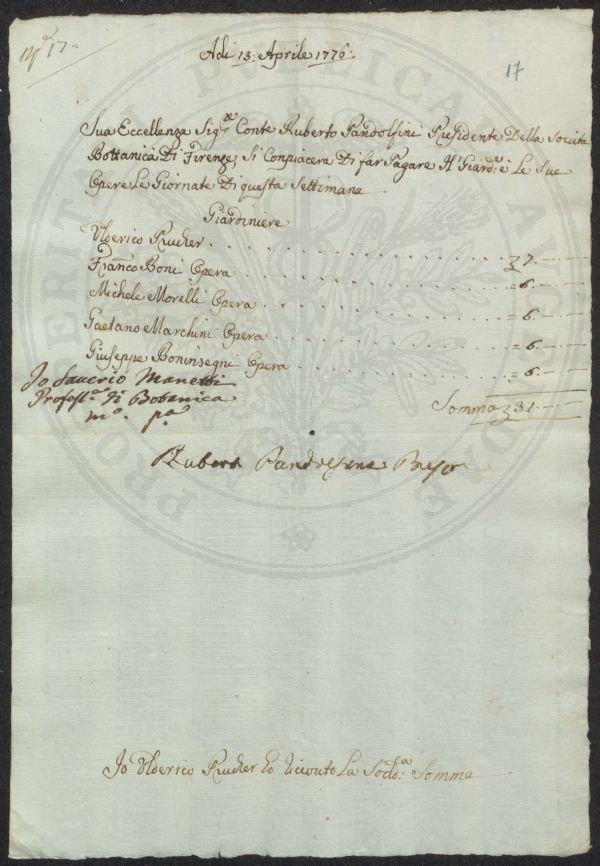 N.° 17.
17
Adi 13: Aprile 1776:
Sua Eccellenza Sig.re Conte Ruberto Pandolfini Presidente Della Societa
Bottanica Di Firenze, Si Conpiacera Di far Pagare Al Giard.e e Le Sue
Opere Le Giornate Di questa Settimana
Giardiniere
Ulderico Rucher . . . . . . . . 7. —
Franco Boni Opera . . . . . . . . = 6. —
Michele Morelli Opera . . . . . . . . = 6. —
Gaetano Marchini Opera . . . . . . . . = 6. —
Giuseppe Boninsegni Opera . . . . . . . . = 6. —
Somma 31. —
Io Saverio Manetti
Profess.e di Botanica
m.o p.a
Ruberto Pandolfini
Io Ulderico Rucher ho riceuto La Sod.a Somma
PROSPERITATI PUBLICAE AUGENDAE